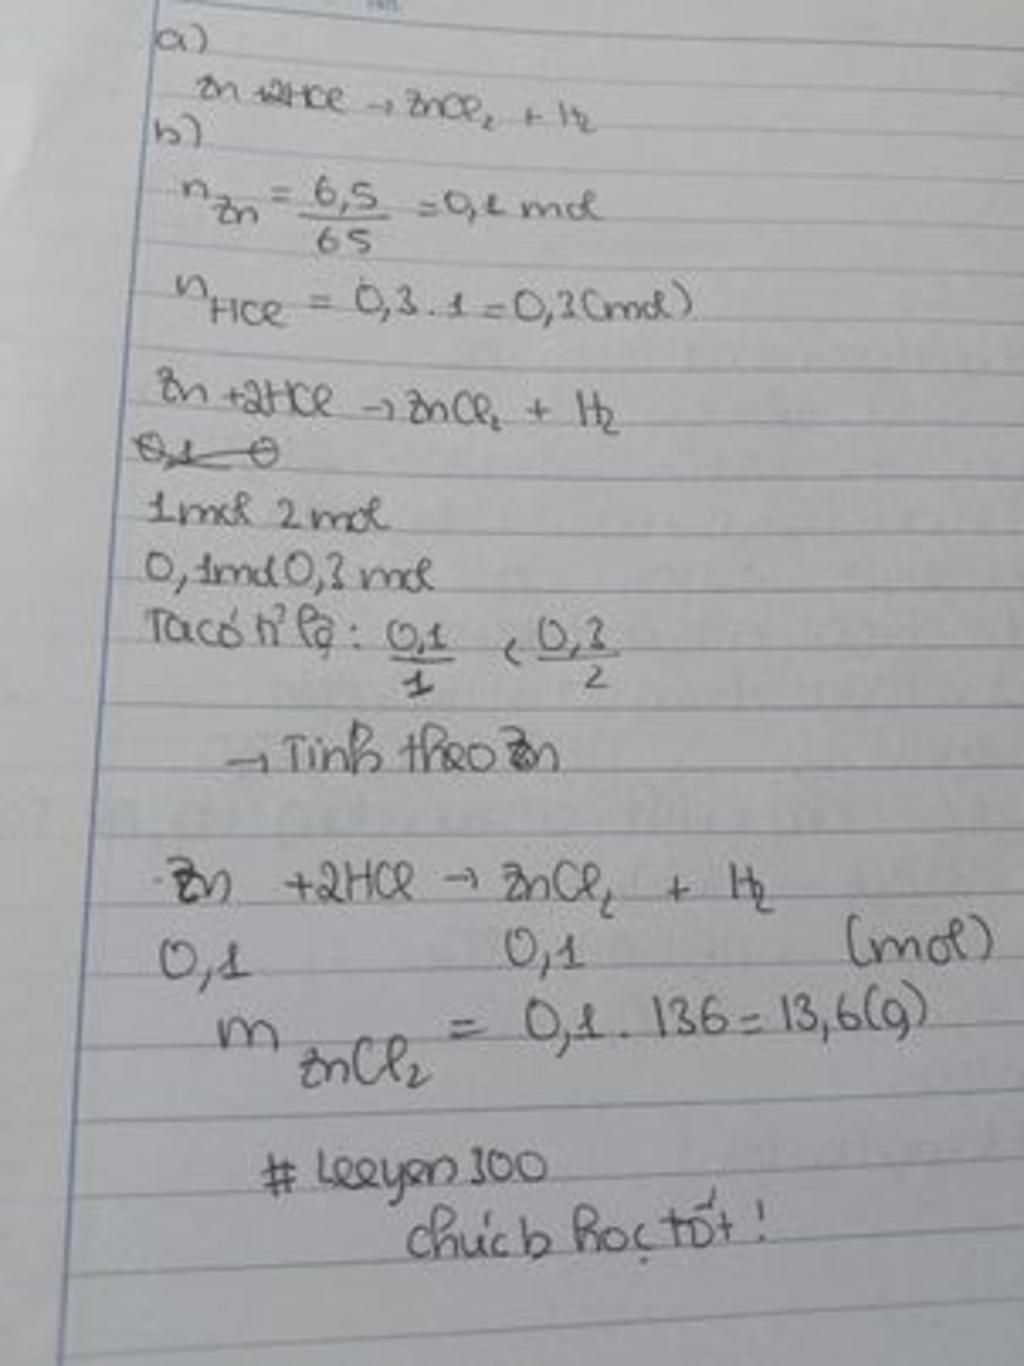 a)
Zn + 2HCl → ZnCl₂ + H₂
b)
n Zn = 6,5 / 65 = 0,1 mol
n HCl = 0,3 . 1 = 0,3 (mol)
Zn + 2HCl → ZnCl₂ + H₂
1 mol 2 mol
0,1 mol 0,3 mol
Ta có tỉ lệ : 0,1 / 1 < 0,3 / 2
→ Tính theo Zn
Zn + 2HCl → ZnCl₂ + H₂
0,1 0,1 (mol)
m ZnCl₂ = 0,1 . 136 = 13,6 (g)
# Leeyen300
chúc b học tốt !